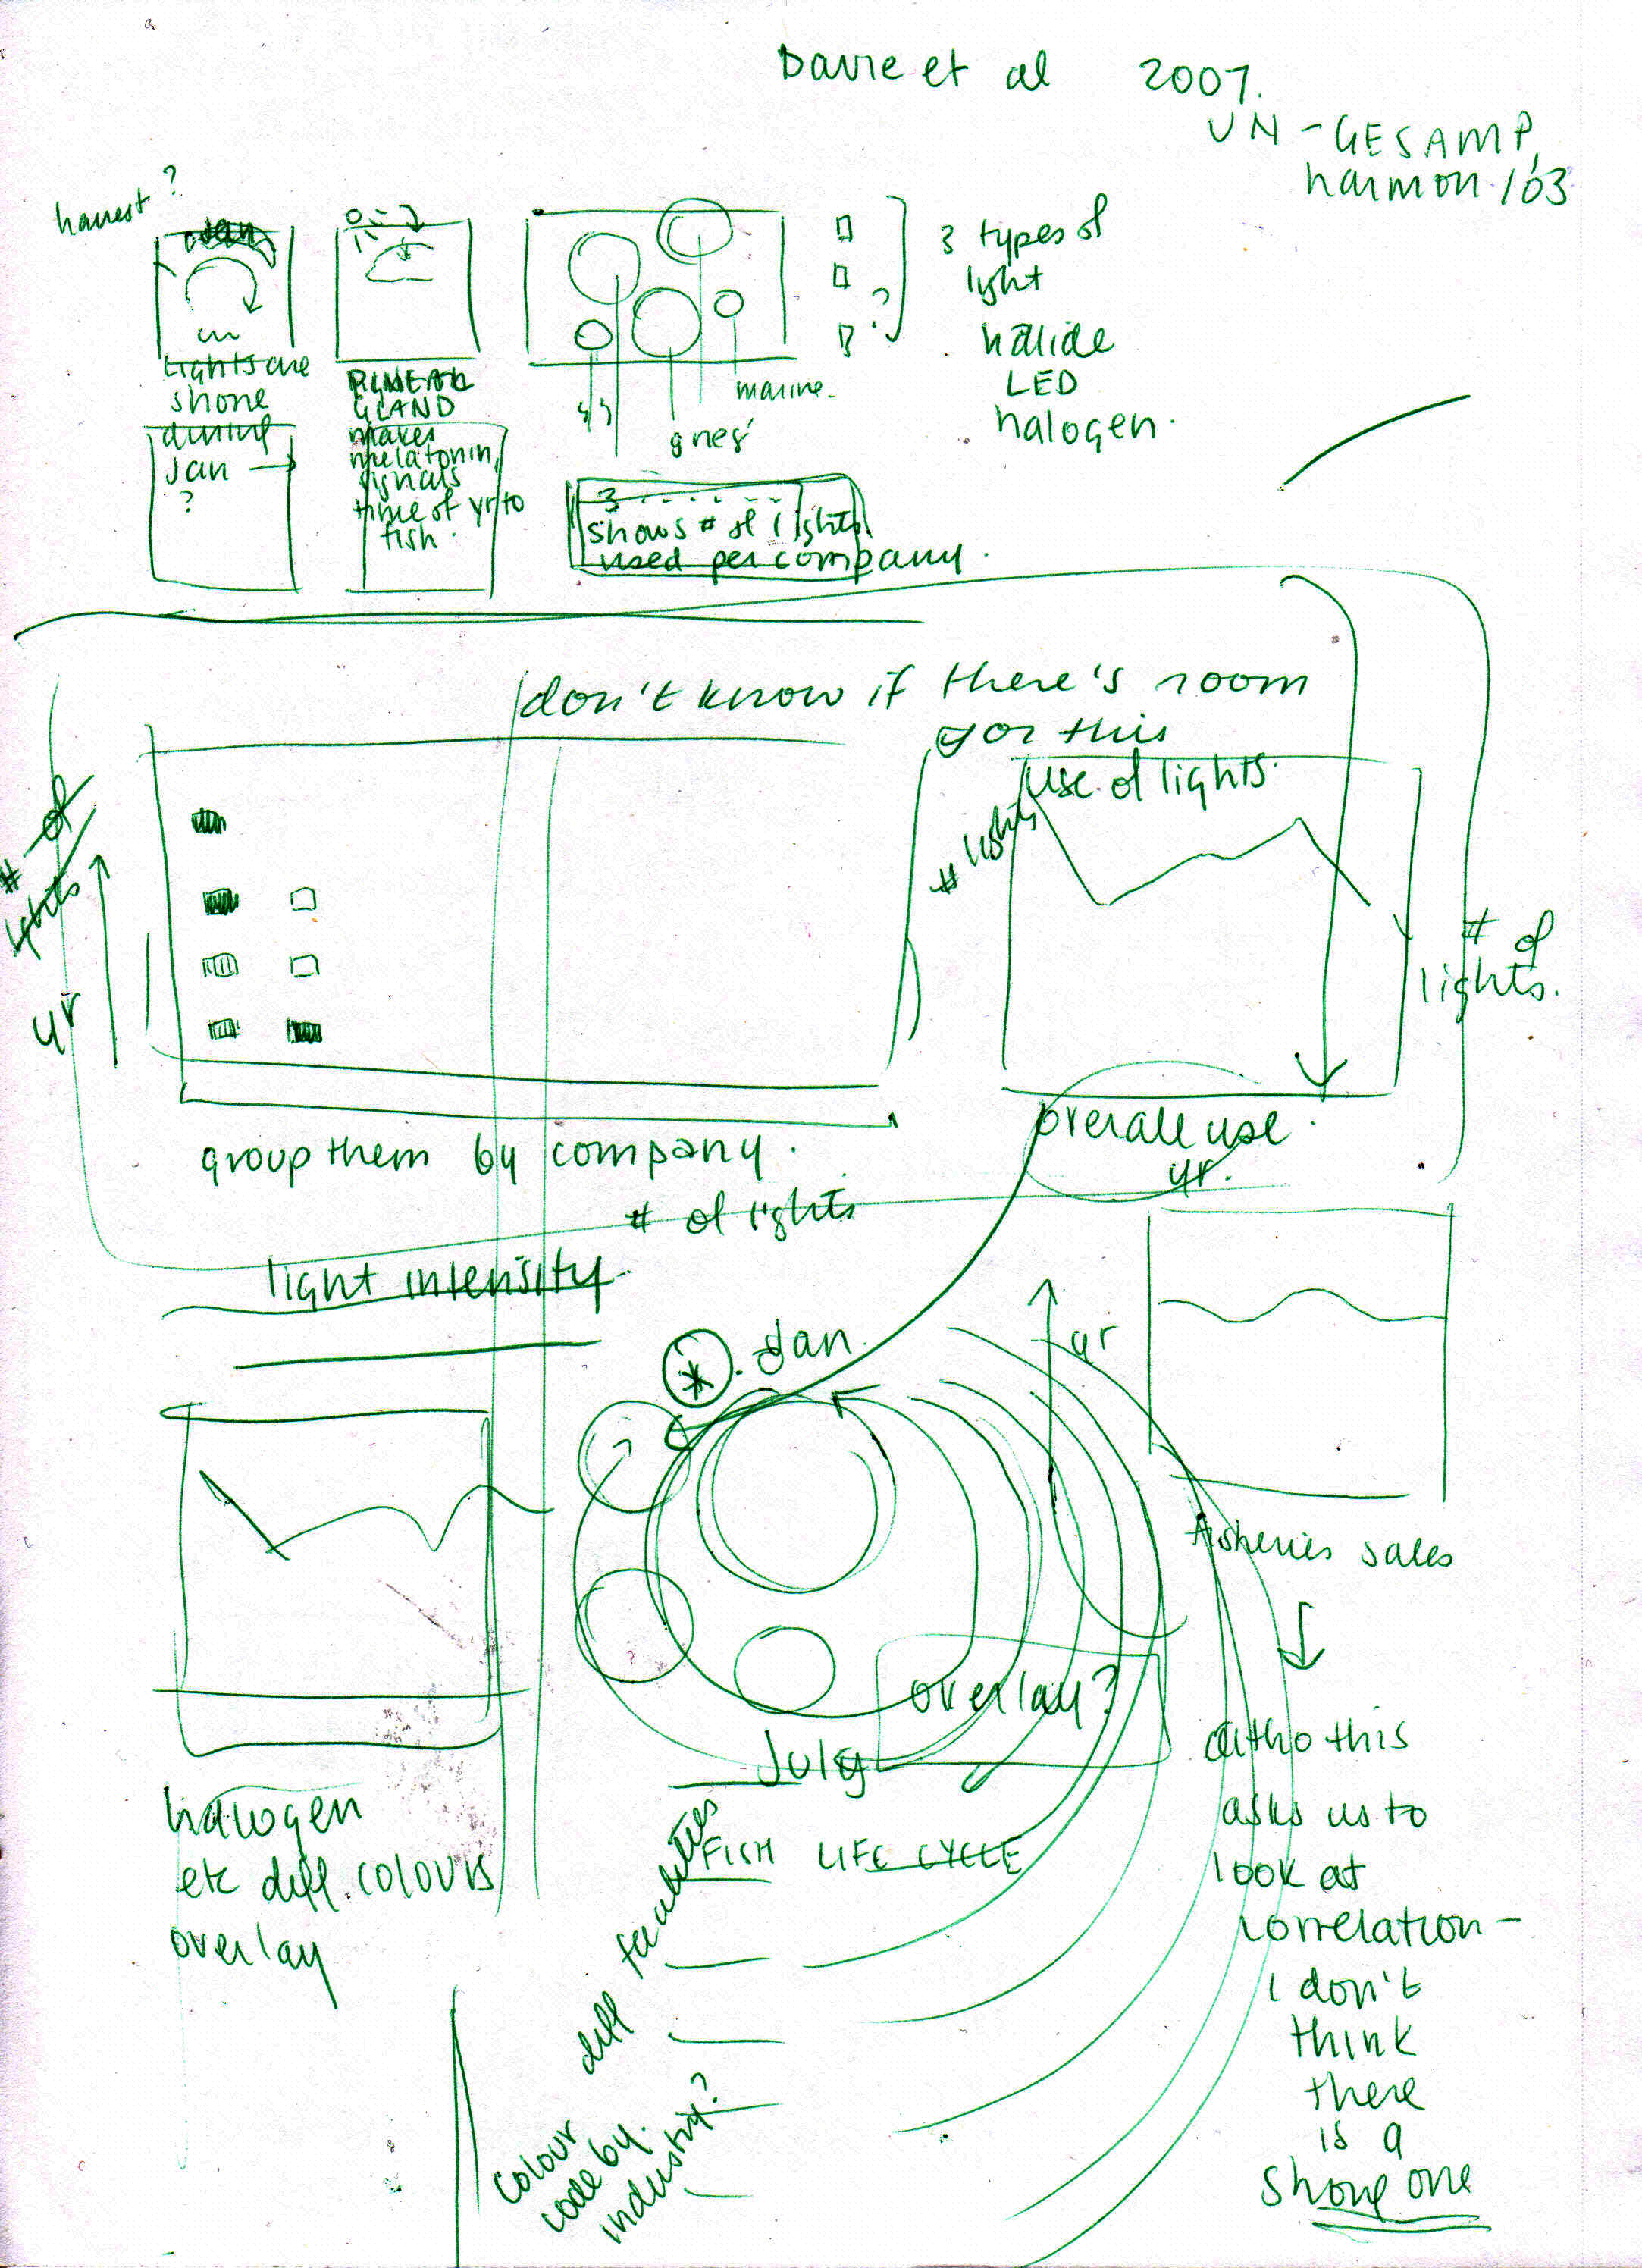 Davie et al 2007.
UN - GESAMP,
harmon / 03
harvest ?
Jan
Lights are
shone
during
Jan →
?
PINEAL
GLAND
makes
melatonin,
signals
time of yr to
fish.
marine.
3 types of
light
halide
LED
halogen.
?
3
shows # of lights
used per company.
don't know if there's room
for this
# of
lights
yr
use of lights.
# lights
# of
lights.
overall use.
yr.
group them by company.
# of lights
light intensity
* Jan.
yr
fisheries sales
overlay?
July
FISH LIFE CYCLE
halogen
etc diff. colours
overlay
diff facilities
colour
code by.
industry?
altho this
asks us to
look at
correlation -
I don't
think
there
is a
strong one